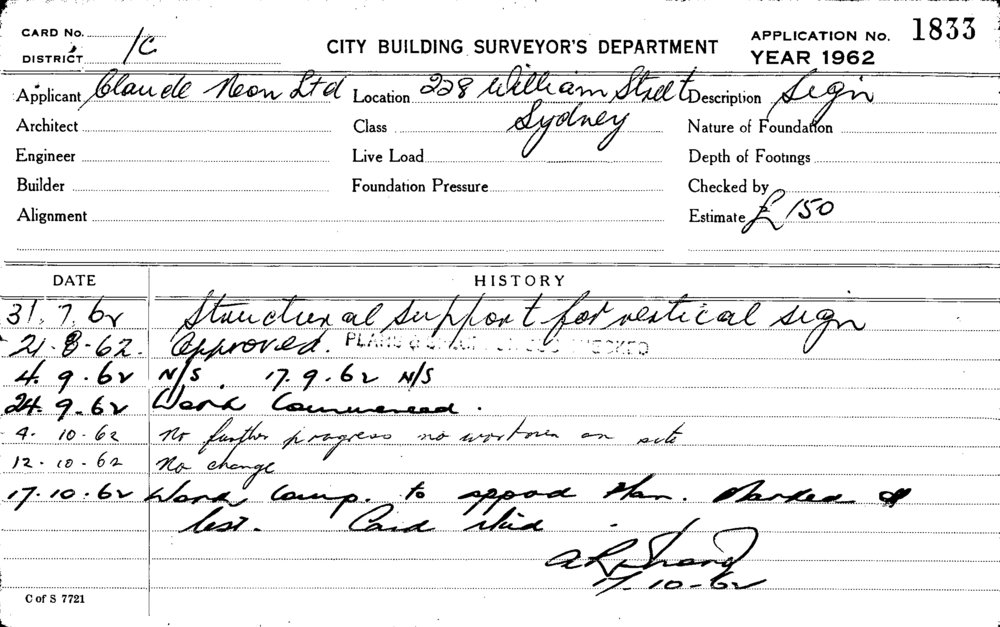 CARD No.
DISTRICT 1C
CITY BUILDING SURVEYOR'S DEPARTMENT
APPLICATION No. 1833
YEAR 1962
Applicant Claude Neon Ltd Location 228 William Street Description Sign
Architect Class Sydney Nature of Foundation
Engineer Live Load Depth of Footings
Builder Foundation Pressure Checked by
Alignment Estimate £ 150
DATE HISTORY
31.7.62 Structural support for vertical sign
21.8.62. Approved. PLANS & CHECKED
4.9.62 N/S. 17.9.62 N/S
24.9.62 Work Commenced.
4.10.62 No further progress no workmen on site
12.10.62 No change
17.10.62 Work Comp. to appod Plan. Marked of
list. Card
17.10.62
C of S 7721